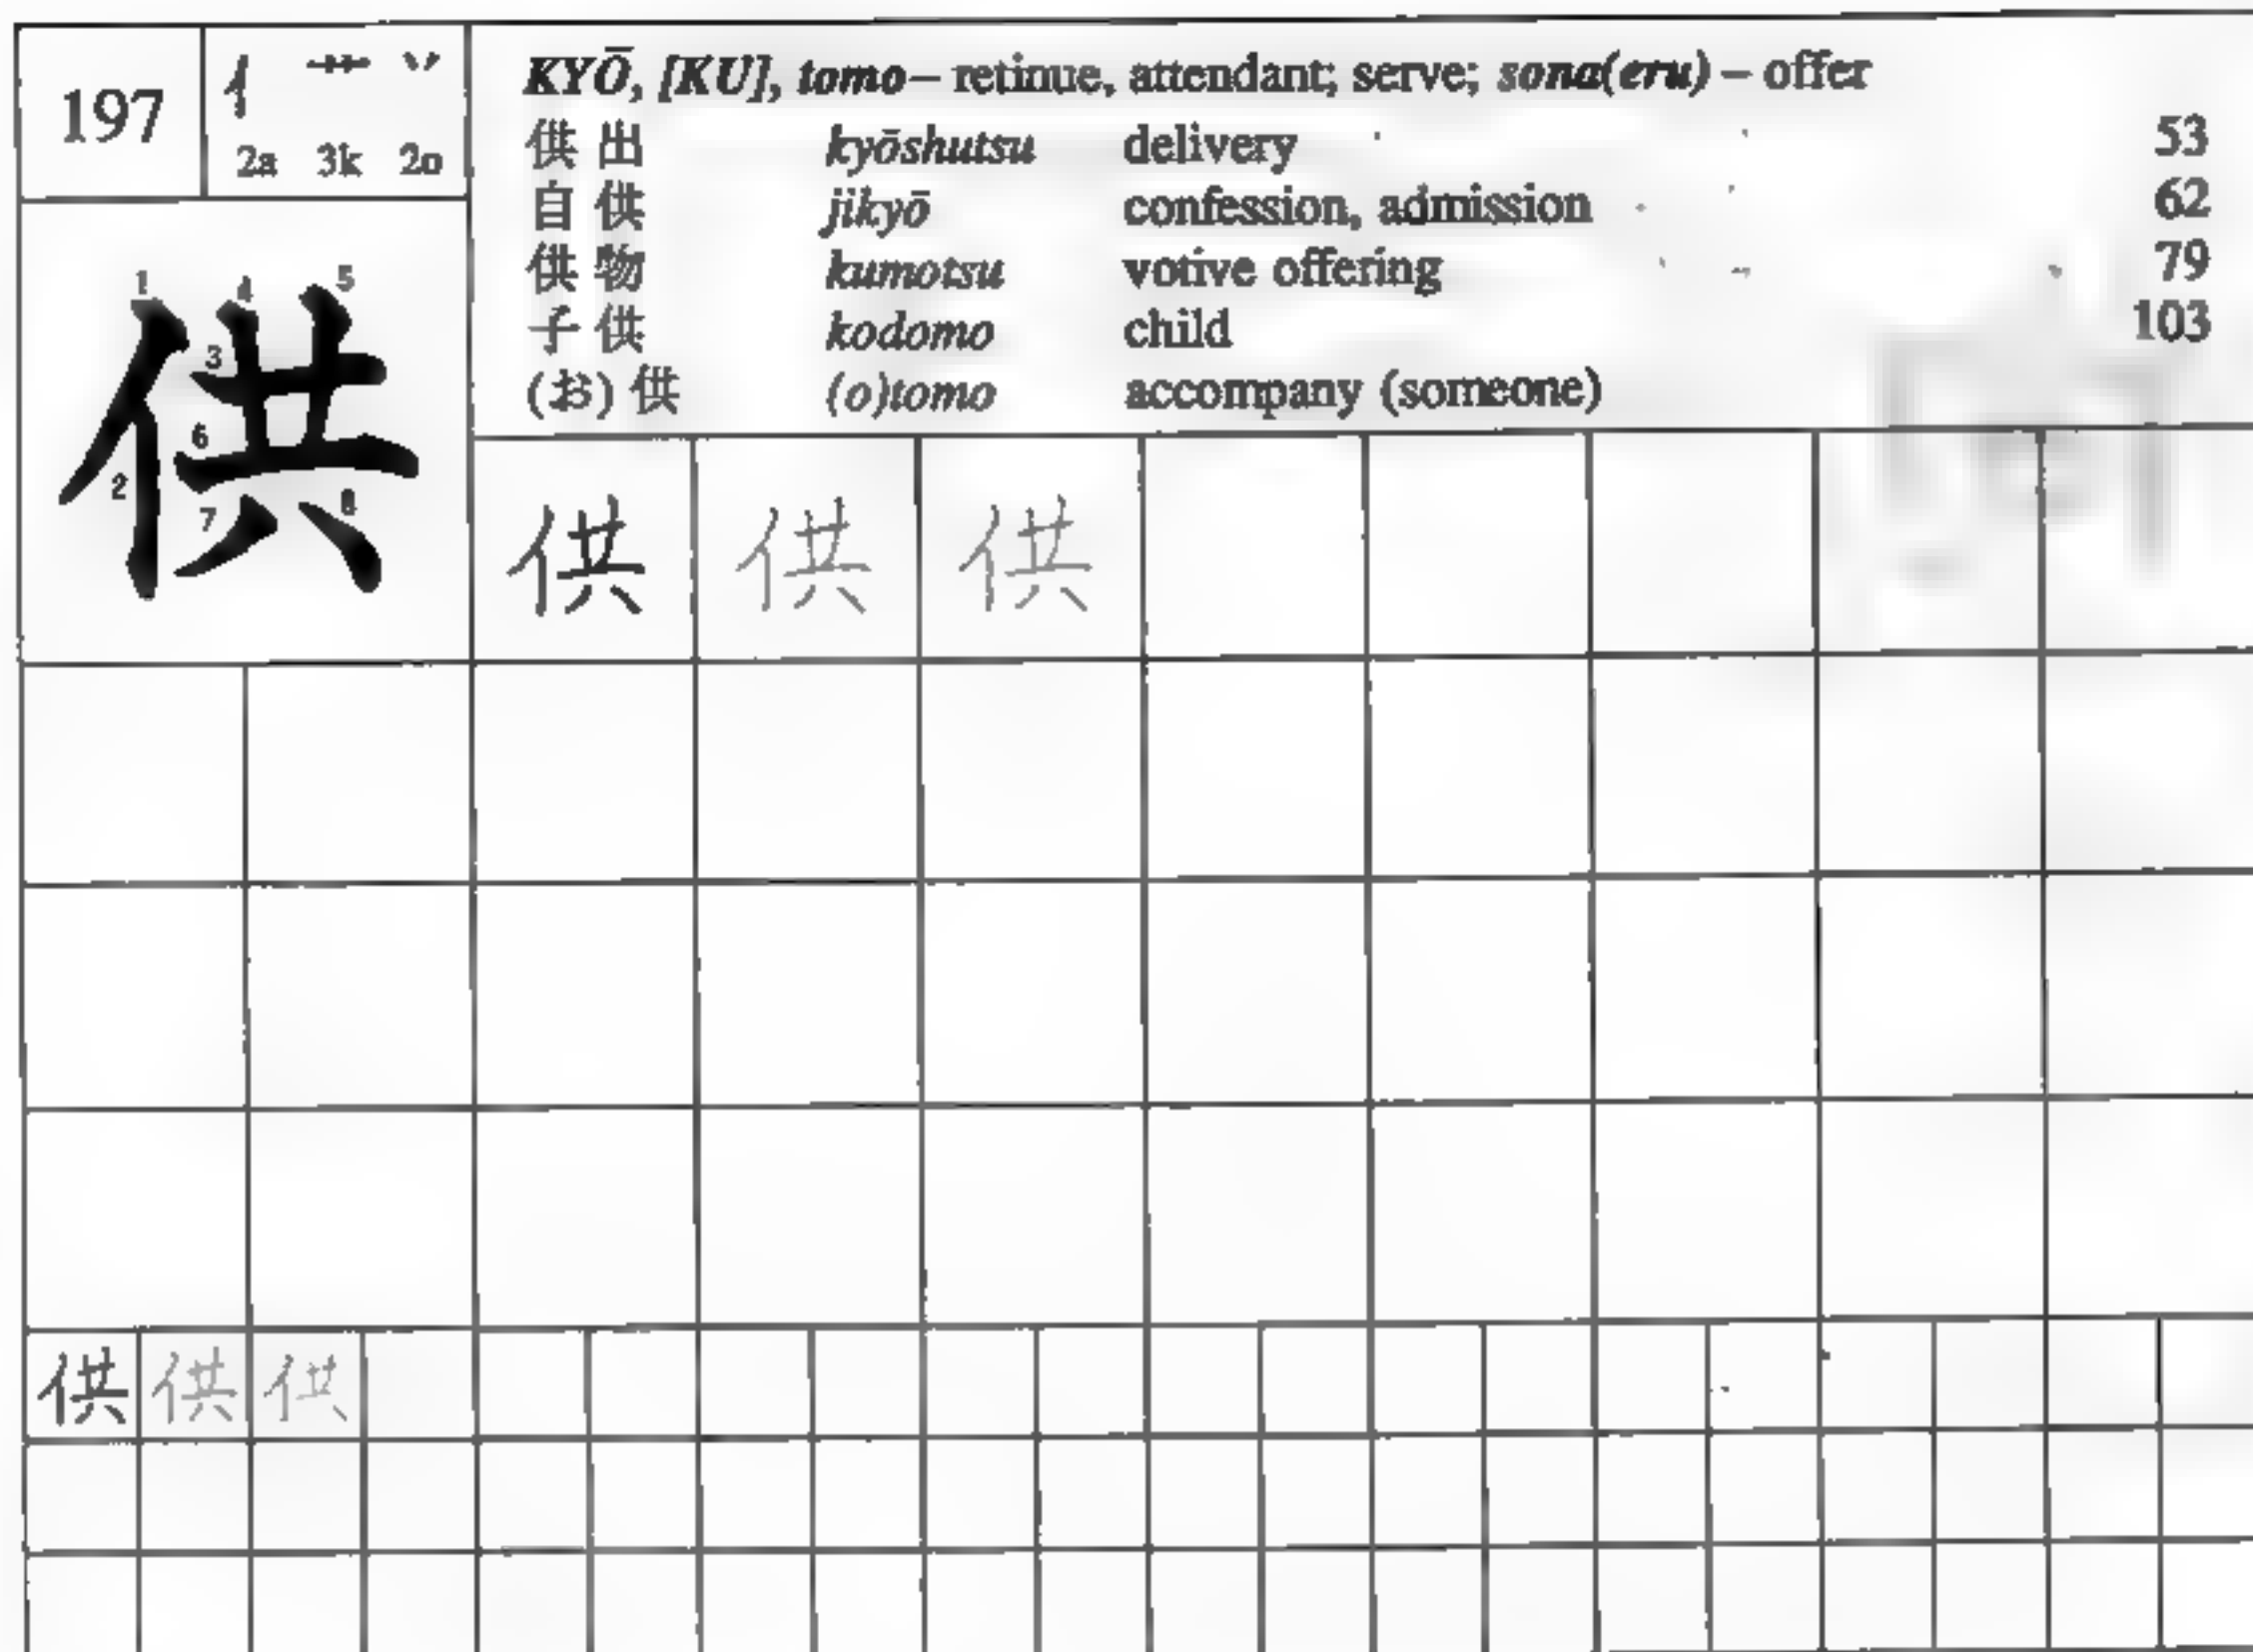 197
亻 艹 丷
2a 3k 2o
KYŌ, [KU], tomo – retinue, attendant; serve; sona(eru) – offer
供出 kyōshutsu delivery 53
自供 jikyō confession, admission 62
供物 kumotsu votive offering 79
子供 kodomo child 103
(お)供 (o)tomo accompany (someone)
供
1 2 3 4 5 6 7 8
供 供 供
供 供 供